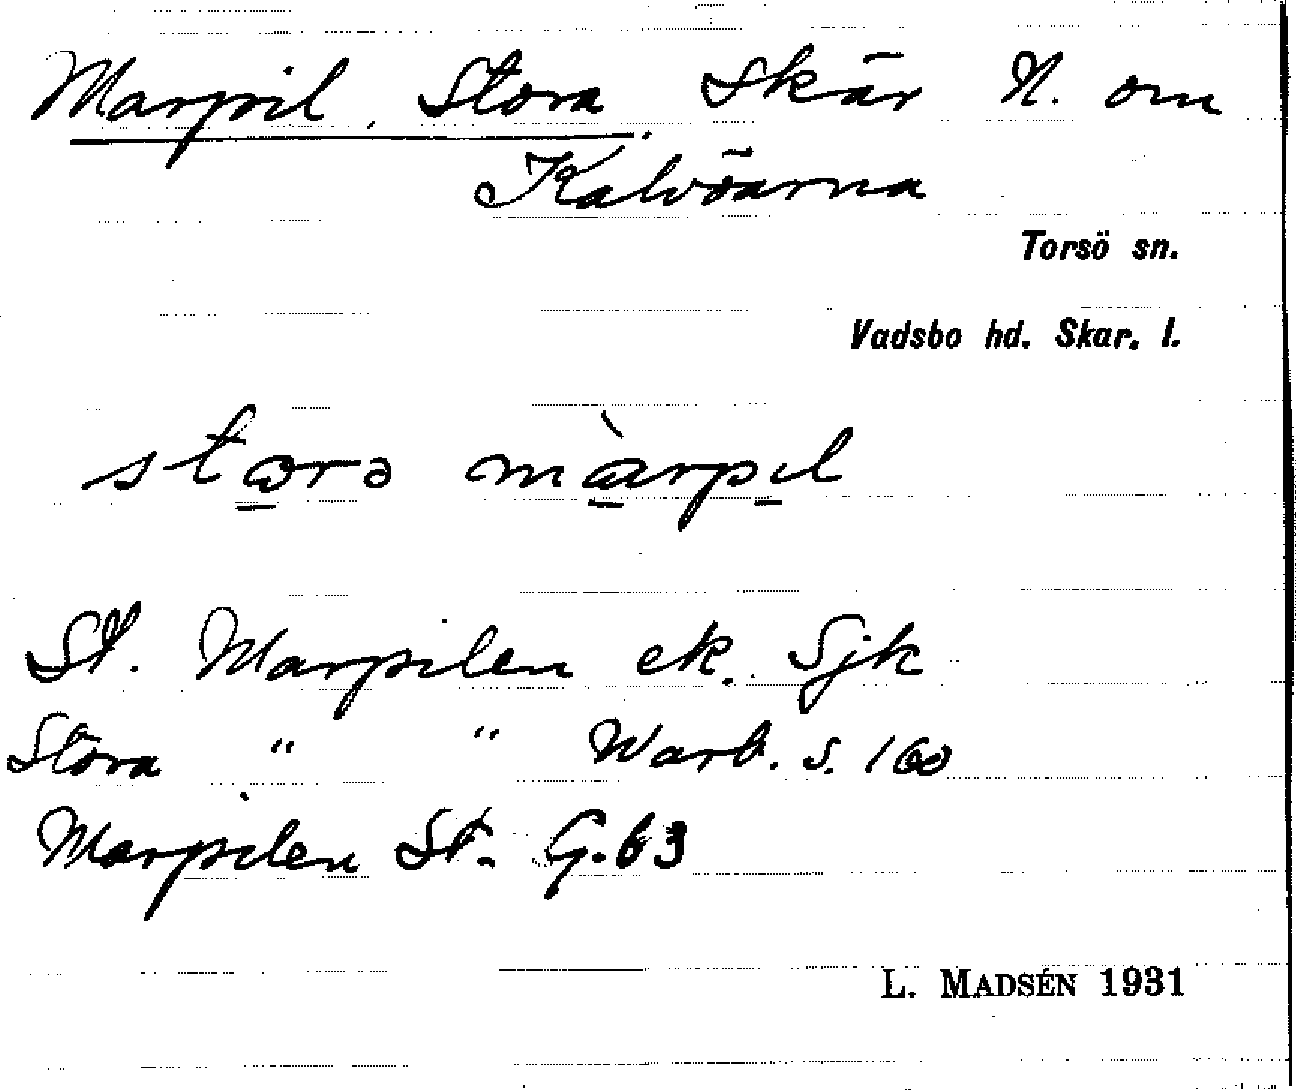 Marpil, Stora. Skär N. om
Kalvöarna
Torsö sn.
Vadsbo hd. Skar. l.
storə màrpil
St. Marpilen ek. Sjk
Stora " " Warb. s. 160
Marpilen St. G. 63
L. MADSÉN 1931